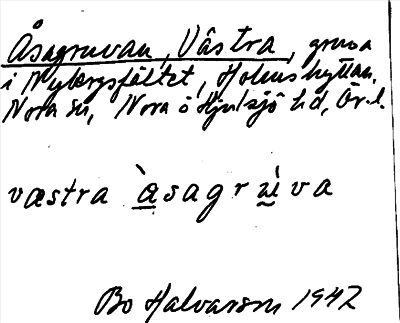 Åsagruvan, Västra, gruva
i Nybergsfältet, Holmshyttan,
Nora sn, Nora o Hjulsjö hd, Ör.l.
væstra `asagr`uva
Bo Halvarson 1942